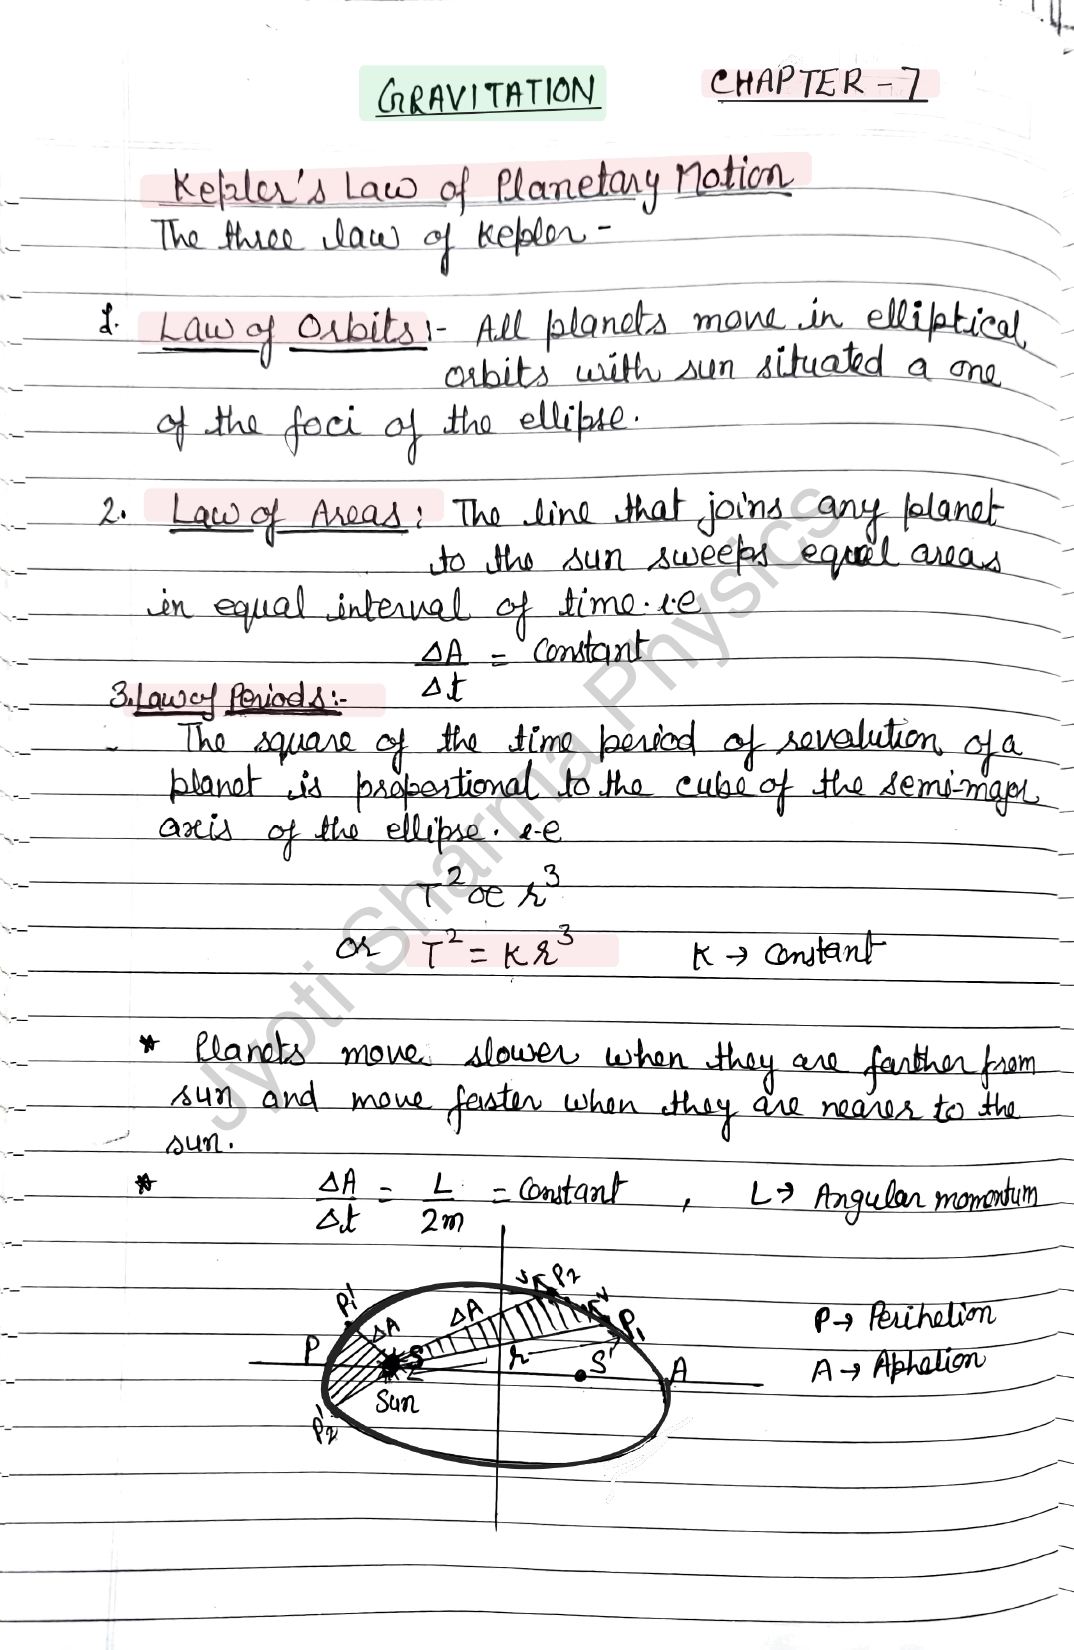 GRAVITATION
CHAPTER - 7
Kepler's Law of Planetary Motion
The three law of Kepler -
1. Law of Orbits :- All planets move in elliptical
orbits with sun situated a one
of the foci of the ellipse.
2. Law of Areas : The line that joins any planet
to the sun sweeps equal areas
in equal interval of time. i.e
ΔA/Δt = Constant
3. Law of Periods :-
The square of the time period of revolution of a
planet is propertional to the cube of the semi-major
axis of the ellipse. i-e
T² ∝ r³
or T² = K r³ K → Constant
* Planets move slower when they are farther from
sun and move faster when they are nearer to the
sun.
* ΔA/Δt = L/2m = Constant , L → Angular momentum
v P₂
P₁' ΔA v
ΔA P₁ P → Perihelion
P S r S' A A → Aphelion
Sun
P₂'
Jyoti Sharma Physics